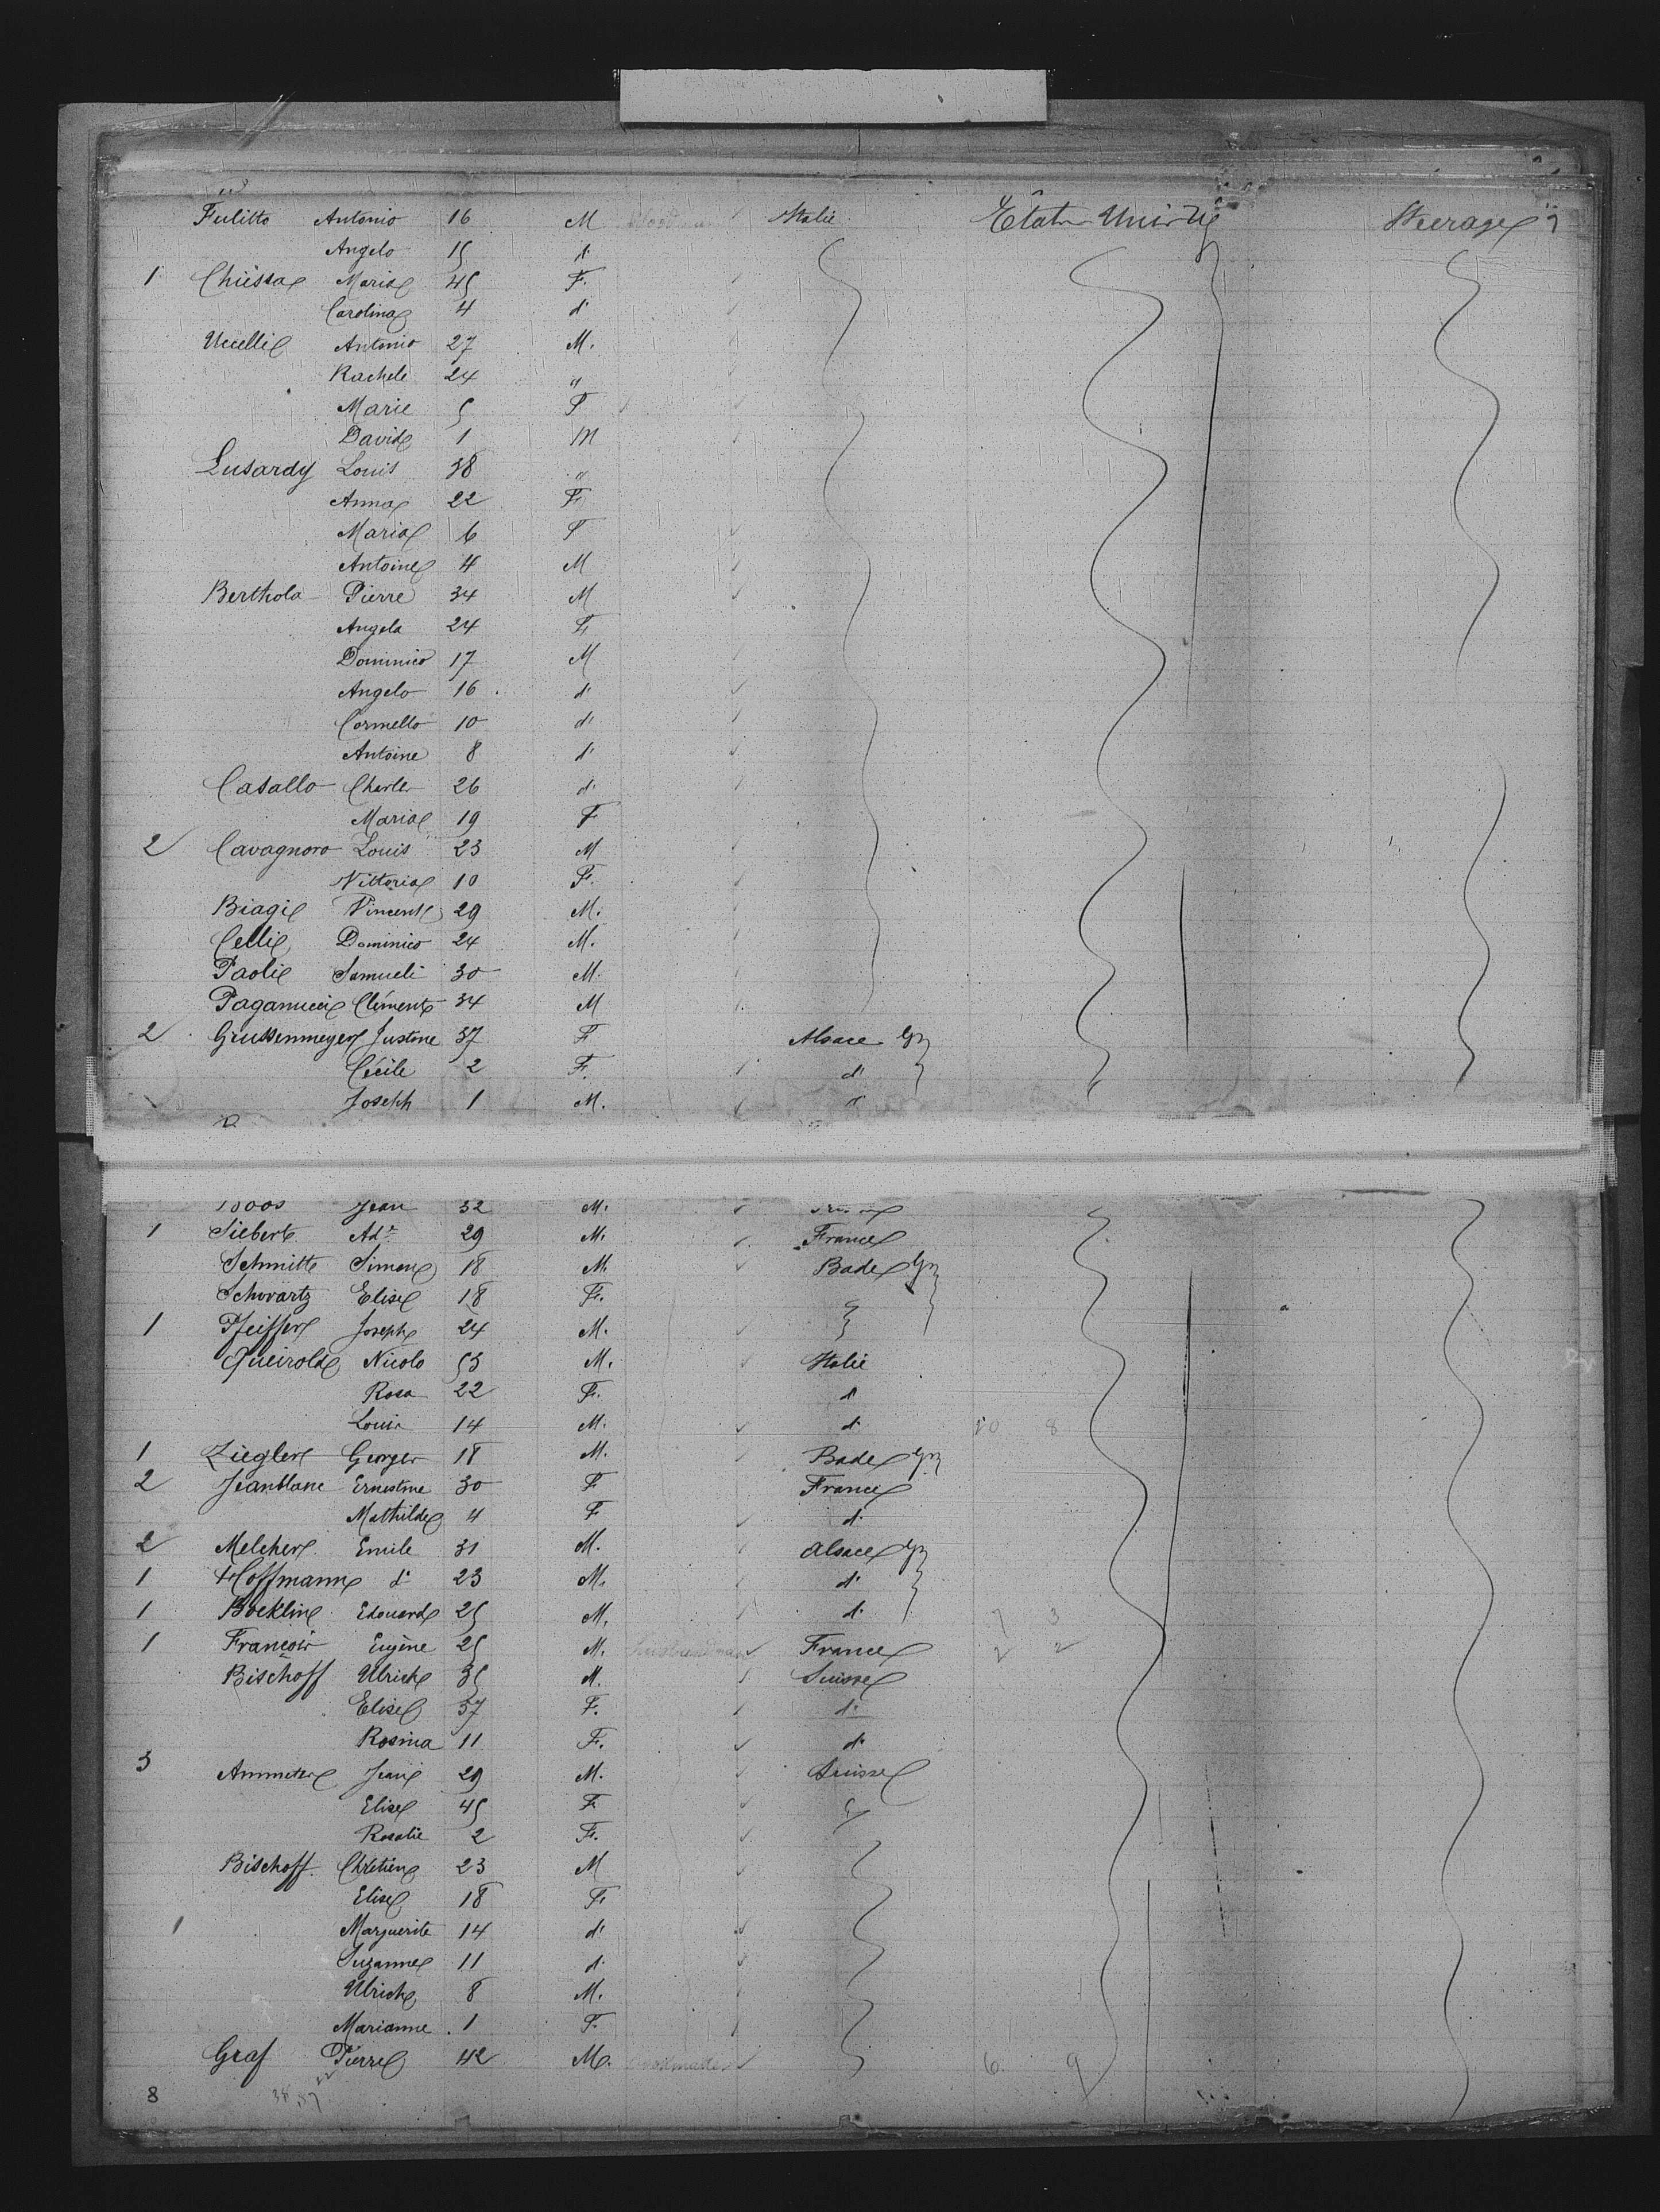 Antonio 16 M Italie Etats Unis Steerage
Angelo 15 d°
1 Chiessa Maria 45 F.
Carolina 4 d°
Uccelli Antonio 27 M.
Rachele 24 "
Marie 5 F
David 1 M
Lusardy Louis 38 "
Anna 22 F
Maria 6 F
Antoine 4 M
Berthola Pierre 34 M
Angela 24 F
Dominico 17 M
Angelo 16 d°
Cormello 10 d°
Antoine 8 d°
Casallo Charles 26 d°
Maria 19 F
2 Cavagnoro Louis 23 M
Vittoria 10 F.
Biagi Vincent 29 M.
Celli Dominico 24 M.
Paoli Samueli 30 M.
Paganucci Clément 34 M
2 Grussenmeyer Justine 37 F Alsace Gy
Cécile 2 F. d°
Joseph 1 M. d°
Jean 32 M.
1 Siebert Ad. 29 M. France
Schmitt Simon 18 M. Bade Gy
Schwartz Elise 18 F.
1 Pfeiffer Joseph 24 M.
Queirold Nicolo 53 M. Italie
Rosa 22 F. d°
Louis 14 M. d°
1 Ziegler Georges 18 M. Bade Gy
2 Jeanblanc Ernestine 30 F France
Mathilde 4 F d°
2 Melcher Emile 31 M. Alsace Gy
1 Hoffmann d° 23 M. d°
1 Boeklin Edouard 25 M. d° 7 3
1 François Eugène 25 M. France 2 2
Bischoff Ulrich 35 M. Suisse
Elise 37 F. d°
Rosina 11 F. d°
3 Ammeter Jean 29 M. Suisse
Elise 45 F
Rosalie 2 F.
Bischoff Chrétien 23 M
Elise 18 F
1 Marguerite 14 d°
Suzanne 11 d°
Ulrich 8 M.
Marianne 1 F.
Graf Pierre 42 M. 6 9
8